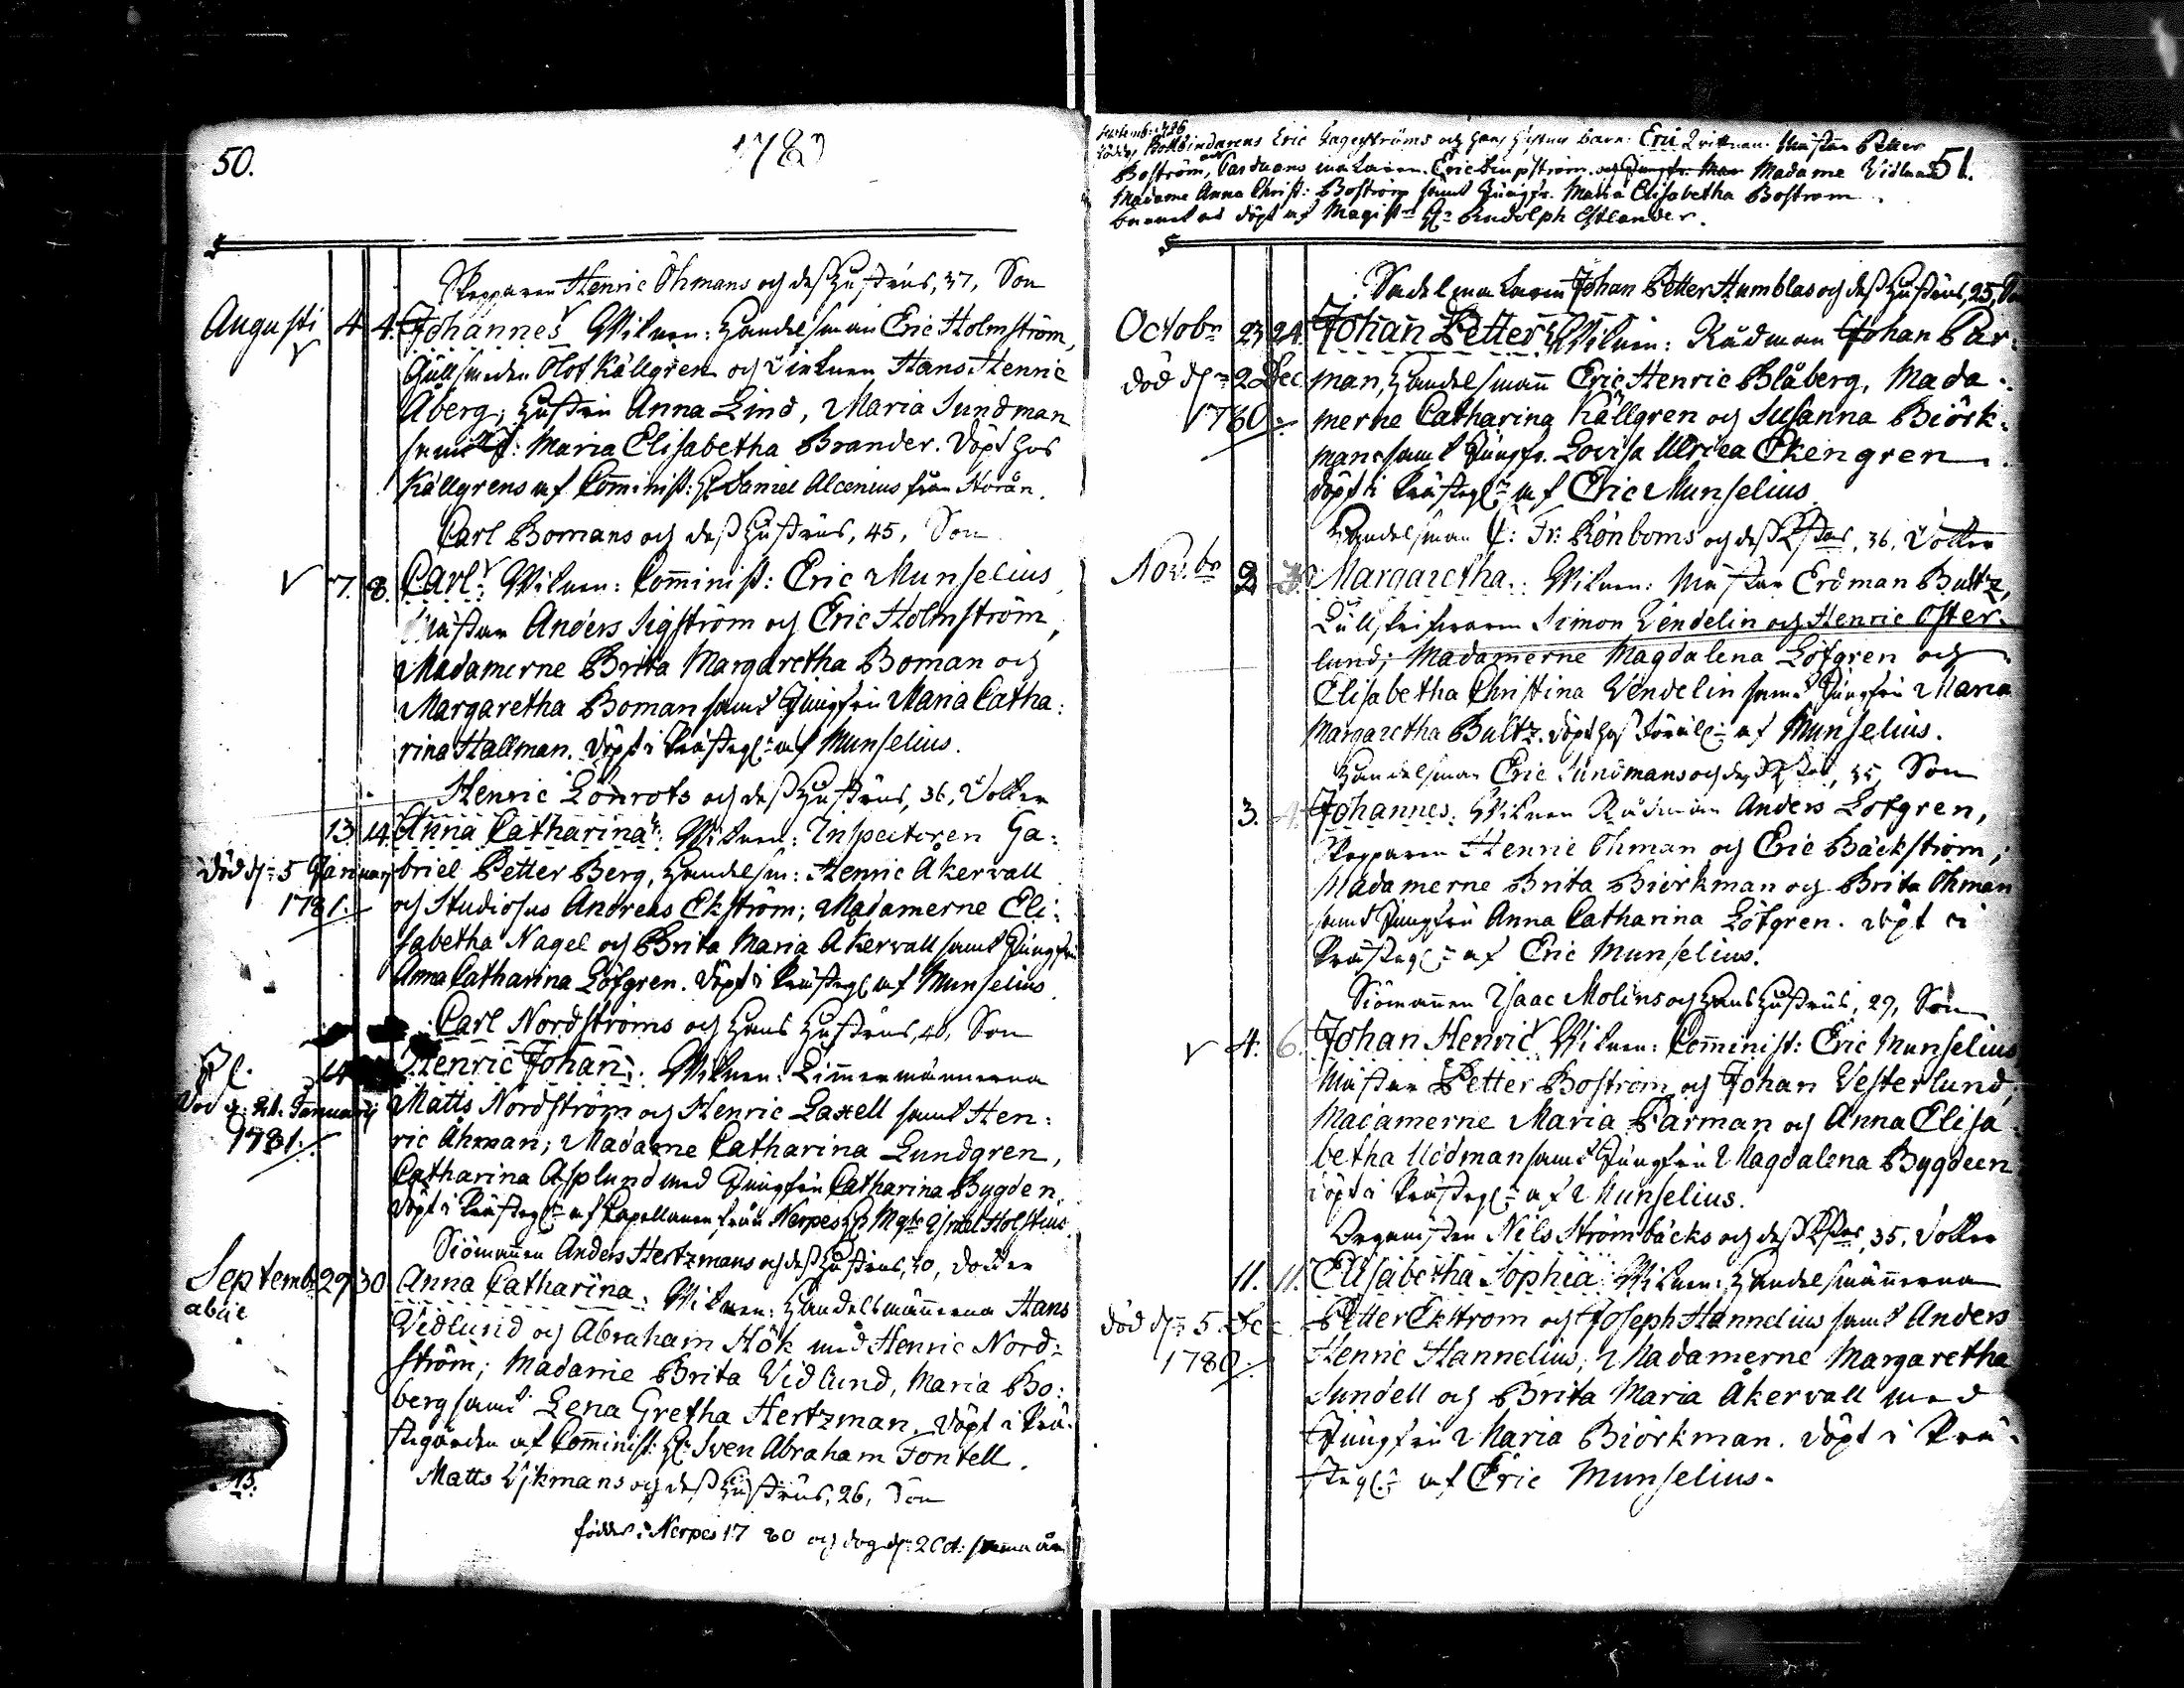 50.
1780
Skepparen Henric Öhmans och dess Hustrus, 37, Son
Augusti 4 4. Johannes Vitnen: Handelsman Eric Holmström,
Gullsmeden Olof Källgren och Hans Henric
Åberg; Hustru Anna Lind, Maria Sundman
samt J: Maria Elisabetha Brander. döpt hos
Källgrens af Comminist: H. Daniel Alcenius från
Carl Bomans och dess Hustrus, 45, Son
7. 8. Carl: Vitnen: Comminist: Eric Munselius,
Mästar Anders Sigström och Eric Holmström,
Madamerne Brita Margaretha Boman och
Margaretha Boman samt Jungfru Maria Catha:
rina Hallman. döpt i Prästeg: af Munselius.
Henric Lönrots och dess Hustrus, 36, dotter
13. 14. Anna Catharina: Vitnen: Inspectoren Ga:
död d: 5 January briel Petter Berg, Handelsm: Henric Åkervall
1781. och Studiosus Andreas Ekström; Madamerne Eli:
sabetha Nagel och Brita Maria Åkervall samt Jungfru
Anna Catharina Löfgren. döpt i Prästeg: af Munselius.
Carl Nordströms och Hans Hustrus, 40, Son
14 Henric Johan: Vitnen: Timmermännerna
död d: 21. January Matts Nordström och Henric Laxell samt Hen:
1781. ric Åhman; Madame Catharina Lundgren,
Catharina Asplund med Jungfru Catharina Bygden.
döpt i Prästeg: af Capellanen från Nerpes H. Mag: Israel Holstius.
Siömannen Anders Hertzmans och dess Hustrus, 30, dotter
Septemb: 29 30 Anna Catharina: Vitnen: Handelsmännerna Hans
abiit
Vidlund och Abraham Hök med Henric Nord:
ström; Madame Brita Vidlund, Maria Bo:
berg samt Lena Gretha Hertzman. döpt i Prä:
stegården af Comminist: H: Sven Abraham Fontell.
Matts Vikmans och dess Hustrus, 26, Son
15.
födder i Nerpes 1780 och dog d: 2 Oct: samma år
51.
Bokbindarens Eric Lagerströms och Hans Hustrus barn: Eric Vittnen. Mästar Petter
Boström, Eric Madame
Madame Anna Christ: Boström samt Jungfr. Maria Elisabetha Boström.
barnet är döpt af Magist: H: Rudolph Estlander.
Sadelmakaren Johan Petter Humblas och dess Hustrus, 25,
Octobr 23 24. Johan Petter Vitnen: Rådman Johan Par:
död d: 2 Dec man, Handelsman Eric Henric Blåberg, Mada:
1780. merne Catharina Källgren och Susanna Biörk:
man samt Jungfr. Lovisa Ulrica Ekengren.
döpt i Prästeg: af Eric Munselius.
Handelsman C: Fr: Rönboms och dess Hustrus, 36, dotter
Nov:br 2 3 Margaretha: Vitnen: Mästar Erdman Bultz,
Tullskrifvaren Simon Vendelin och Henric Öster:
lund; Madamerne Magdalena Löfgren och
Elisabetha Christina Vendelin samt Jungfru Maria
Margaretha Bultz. döpt hos af Munselius.
Handelsman Eric Sundmans och dess 35, Son
3. 4. Johannes: Vitnen Rådman Anders Löfgren,
Skepparen Henric Öhman och Eric Bäckström,
Madamerne Brita Biörkman och Brita Öhman
samt Jungfru Anna Catharina Löfgren. döpt i
Prästeg: af Eric Munselius.
Siömannen Isaac Molins och Hans Hustrus, 29, Son
4. 6. Johan Henric Vitnen: Comminist: Eric Munselius,
Mästar Petter Boström och Johan Vesterlund,
Madamerne Maria Parman och Anna Elisa:
betha Uddman samt Jungfru Magdalena Bygdeen
döpt i Prästeg: af Munselius.
Organisten Nils Strömbäcks och dess 35, dotter
11. 11. Elisabetha Sophia: Vitnen: Handelsmännerna
död d: 5. Dec Petter Ekström och Joseph Hannelius samt Anders
1780. Henric Hannelius; Madamerne Margaretha
Sundell och Brita Maria Åkervall med
Jungfru Maria Biörkman. döpt i Prä:
steg: af Eric Munselius.